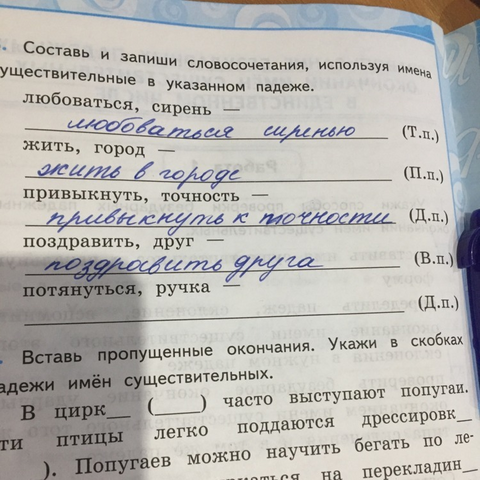 Составь и запиши словосочетания, используя имена
уществительные в указанном падеже.
любоваться, сирень —
любоваться сиренью (Т.п.)
жить, город —
жить в городе (П.п.)
привыкнуть, точность —
привыкнуть к точности (Д.п.)
поздравить, друг —
поздравить друга (В.п.)
потянуться, ручка —
(Д.п.)
Вставь пропущенные окончания. Укажи в скобках
адежи имён существительных.
В цирк__ (___) часто выступают попугаи.
ти птицы легко поддаются дрессировк__
). Попугаев можно научить бегать по ле-
на перекладин__